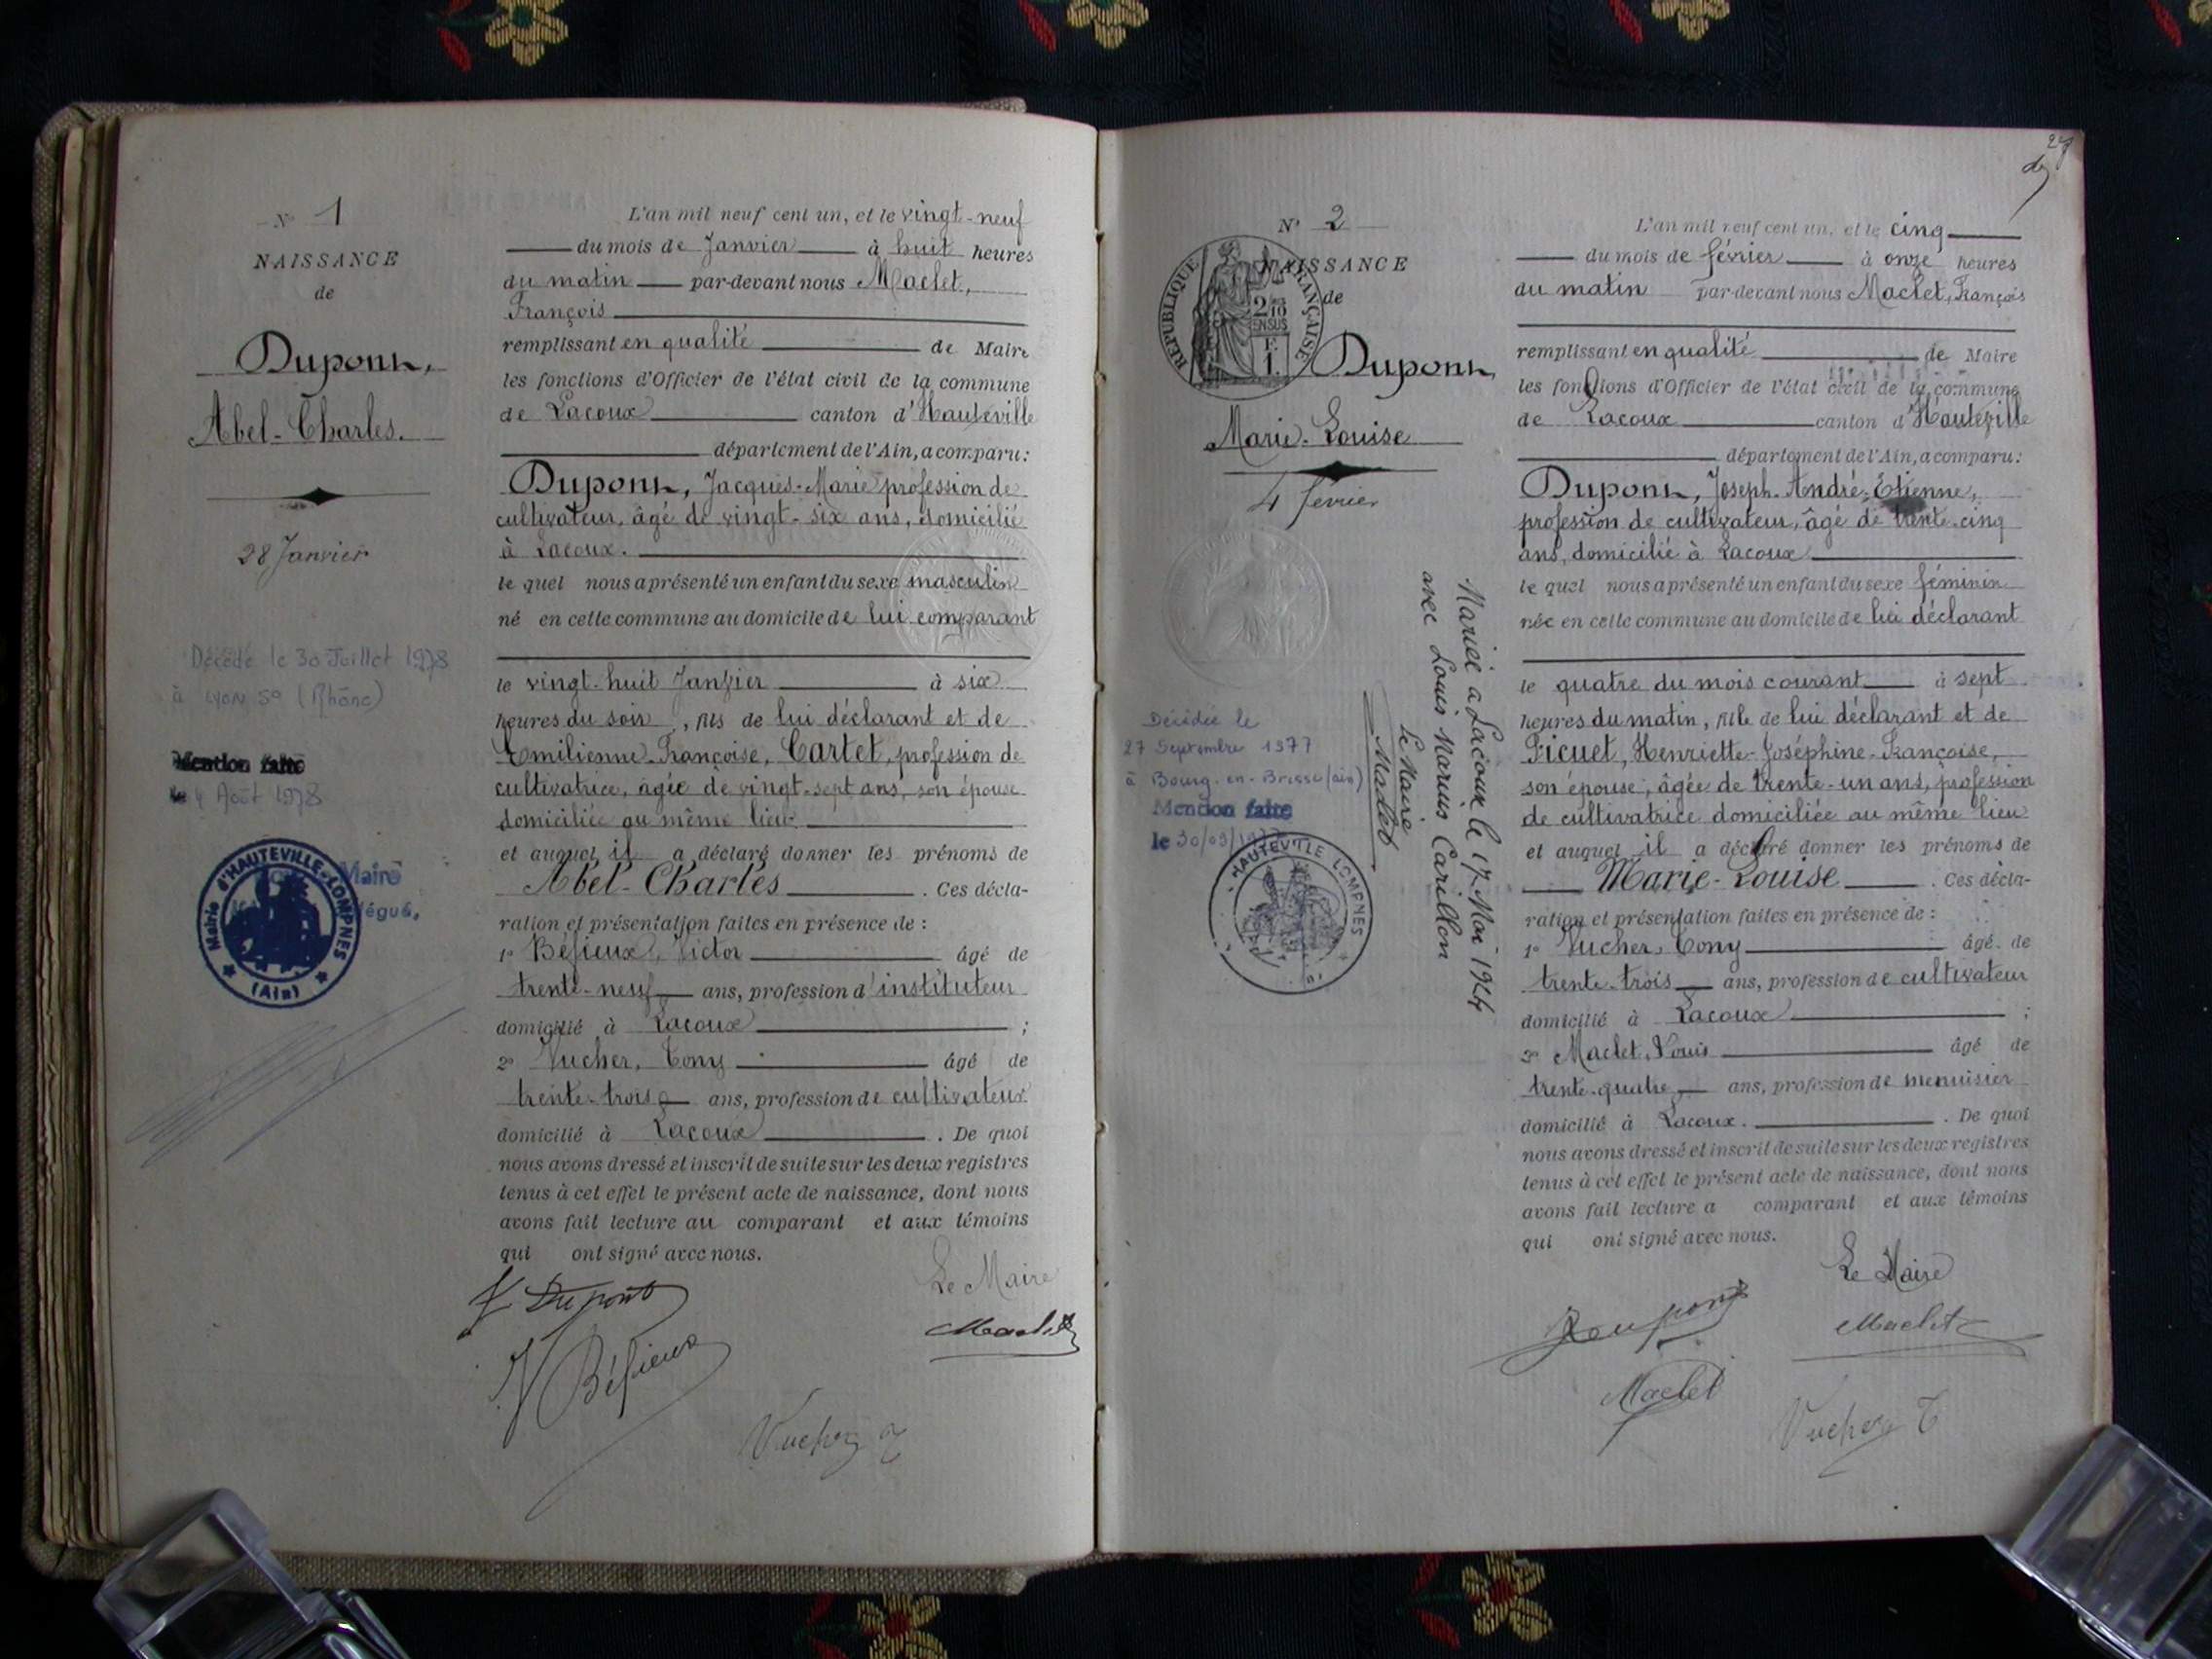 N° 1
NAISSANCE
de
Dupont,
Abel-Charles.
28 Janvier
Décédé le 30 Juillet 1978
à LYON 5e (Rhône)
Mention faite
le 4 Août 1978
Maire
Mairie d'HAUTEVILLE-LOMPNES
(Ain)
L'an mil neuf cent un, et le vingt-neuf
du mois de Janvier à huit heures
du matin par-devant nous Maclet,
François
remplissant en qualité de Maire
les fonctions d'Officier de l'état civil de la commune
de Lacoux canton d'Hauteville
département de l'Ain, a comparu:
Dupont, Jacques-Marie profession de
cultivateur, âgé de vingt-six ans, domicilié
à Lacoux.
le quel nous a présenté un enfant du sexe masculin
né en cette commune au domicile de lui comparant
le vingt-huit Janvier à six
heures du soir, fils de lui déclarant et de
Emilienne-Françoise, Cartet, profession de
cultivatrice, âgée de vingt-sept ans, son épouse
domiciliée au même lieu
et auquel il a déclaré donner les prénoms de
Abel-Charles. Ces décla-
ration et présentation faites en présence de :
1° Béjieux, Victor âgé de
trente-neuf ans, profession d'instituteur
domicilié à Lacoux ;
2° Vucher, Tony âgé de
trente-trois ans, profession de cultivateur
domicilié à Lacoux. De quoi
nous avons dressé et inscrit de suite sur les deux registres
tenus à cet effet le présent acte de naissance, dont nous
avons fait lecture au comparant et aux témoins
qui ont signé avec nous.
Le Maire
J. Dupont
Maclet
V Béjieux
Vucher T
27
N° 2
NAISSANCE
de
RÉPUBLIQUE FRANÇAISE
2/10
EN SUS
F.
1.
Dupont,
Marie-Louise
4 février
Mariée à Lacoux le 17 Mai 1924
avec Louis Marius Carillon
Le Maire
Maclet
Décédée le
27 Septembre 1977
à Bourg-en-Bresse (ain)
Mention faite
le 30/09/1977
HAUTEVILLE LOMPNES
L'an mil neuf cent un, et le cinq
du mois de février à onze heures
du matin par-devant nous Maclet, François
remplissant en qualité de Maire
les fonctions d'Officier de l'état civil de la commune
de Lacoux canton d'Hauteville
département de l'Ain, a comparu:
Dupont, Joseph-André-Etienne,
profession de cultivateur, âgé de trente-cinq
ans, domicilié à Lacoux
le quel nous a présenté un enfant du sexe féminin
née en cette commune au domicile de lui déclarant
le quatre du mois courant à sept
heures du matin, fille de lui déclarant et de
Picuet, Henriette-Joséphine-Françoise,
son épouse, âgée de trente-un ans, profession
de cultivatrice domiciliée au même lieu
et auquel il a déclaré donner les prénoms de
Marie-Louise. Ces décla-
ration et présentation faites en présence de :
1° Vucher, Tony âgé de
trente-trois ans, profession de cultivateur
domicilié à Lacoux ;
2° Maclet, Louis âgé de
trente-quatre ans, profession de menuisier
domicilié à Lacoux. De quoi
nous avons dressé et inscrit de suite sur les deux registres
tenus à cet effet le présent acte de naissance, dont nous
avons fait lecture a comparant et aux témoins
qui ont signé avec nous.
Le Maire
Dupont
Maclet
Maclet
Vucher T